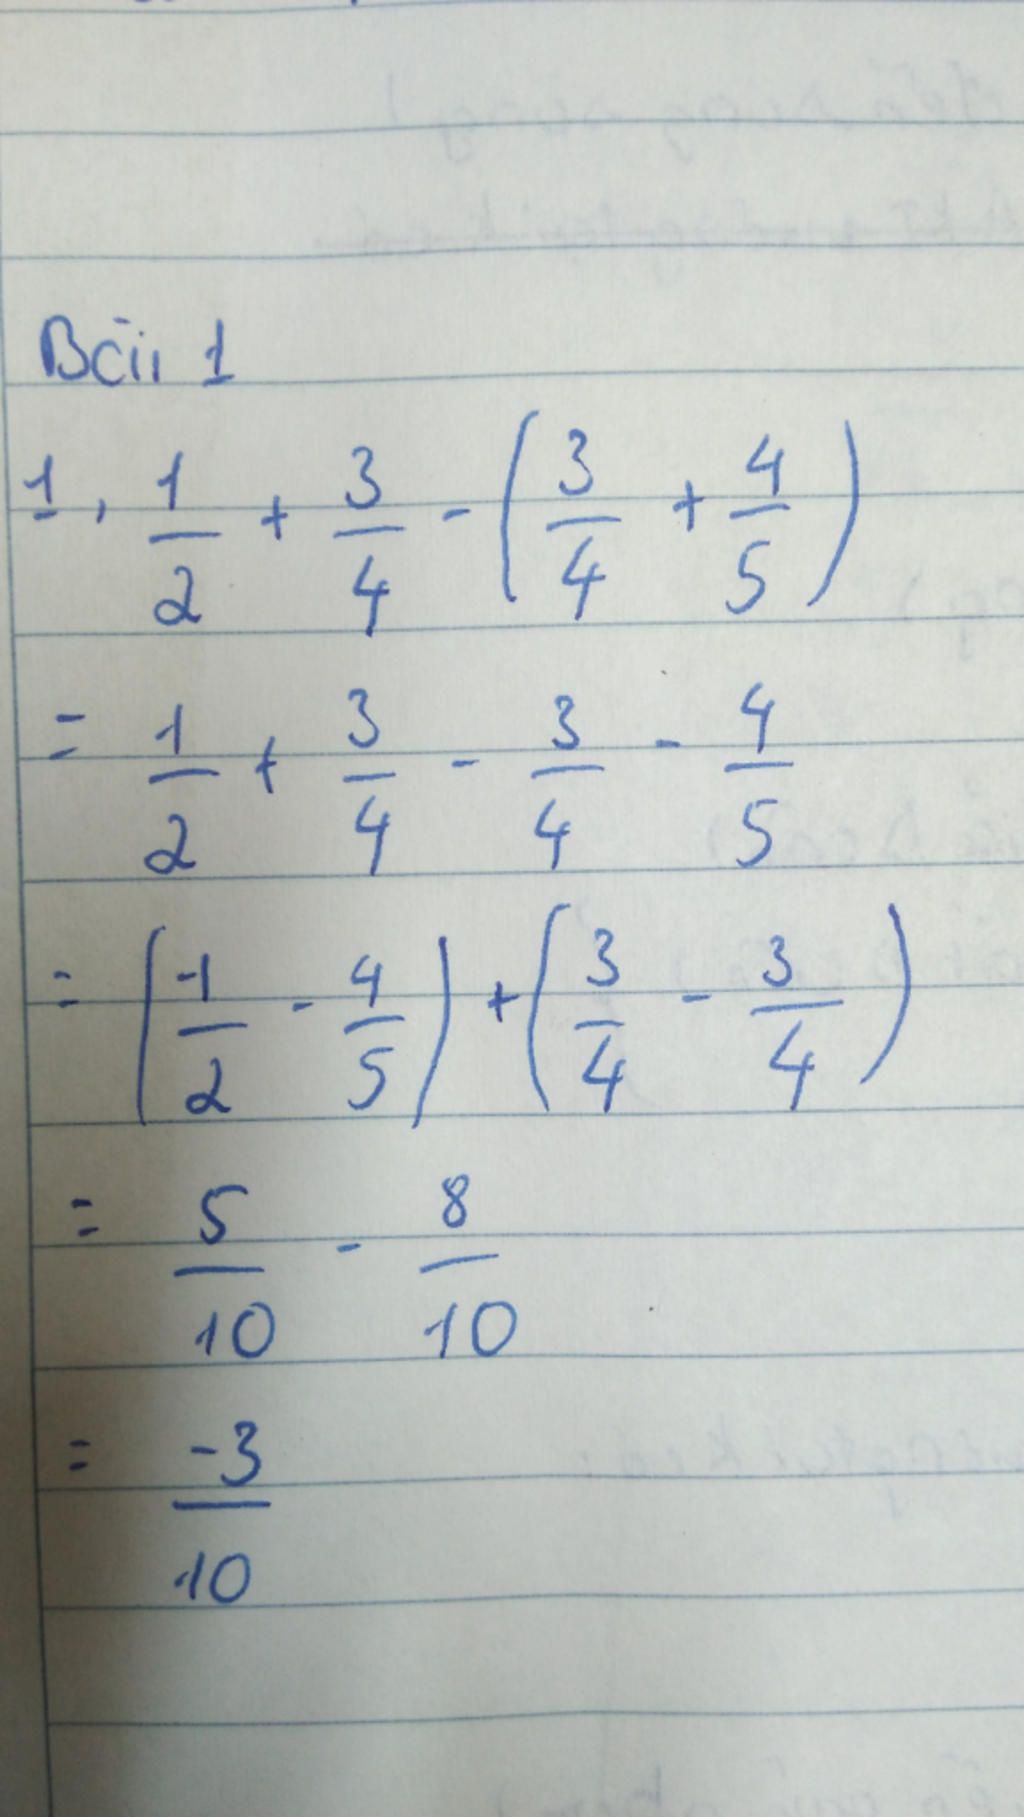 Bài 1
1, 1/2 + 3/4 - (3/4 + 4/5)
= 1/2 + 3/4 - 3/4 - 4/5
= (1/2 - 4/5) + (3/4 - 3/4)
= 5/10 - 8/10
= -3/10